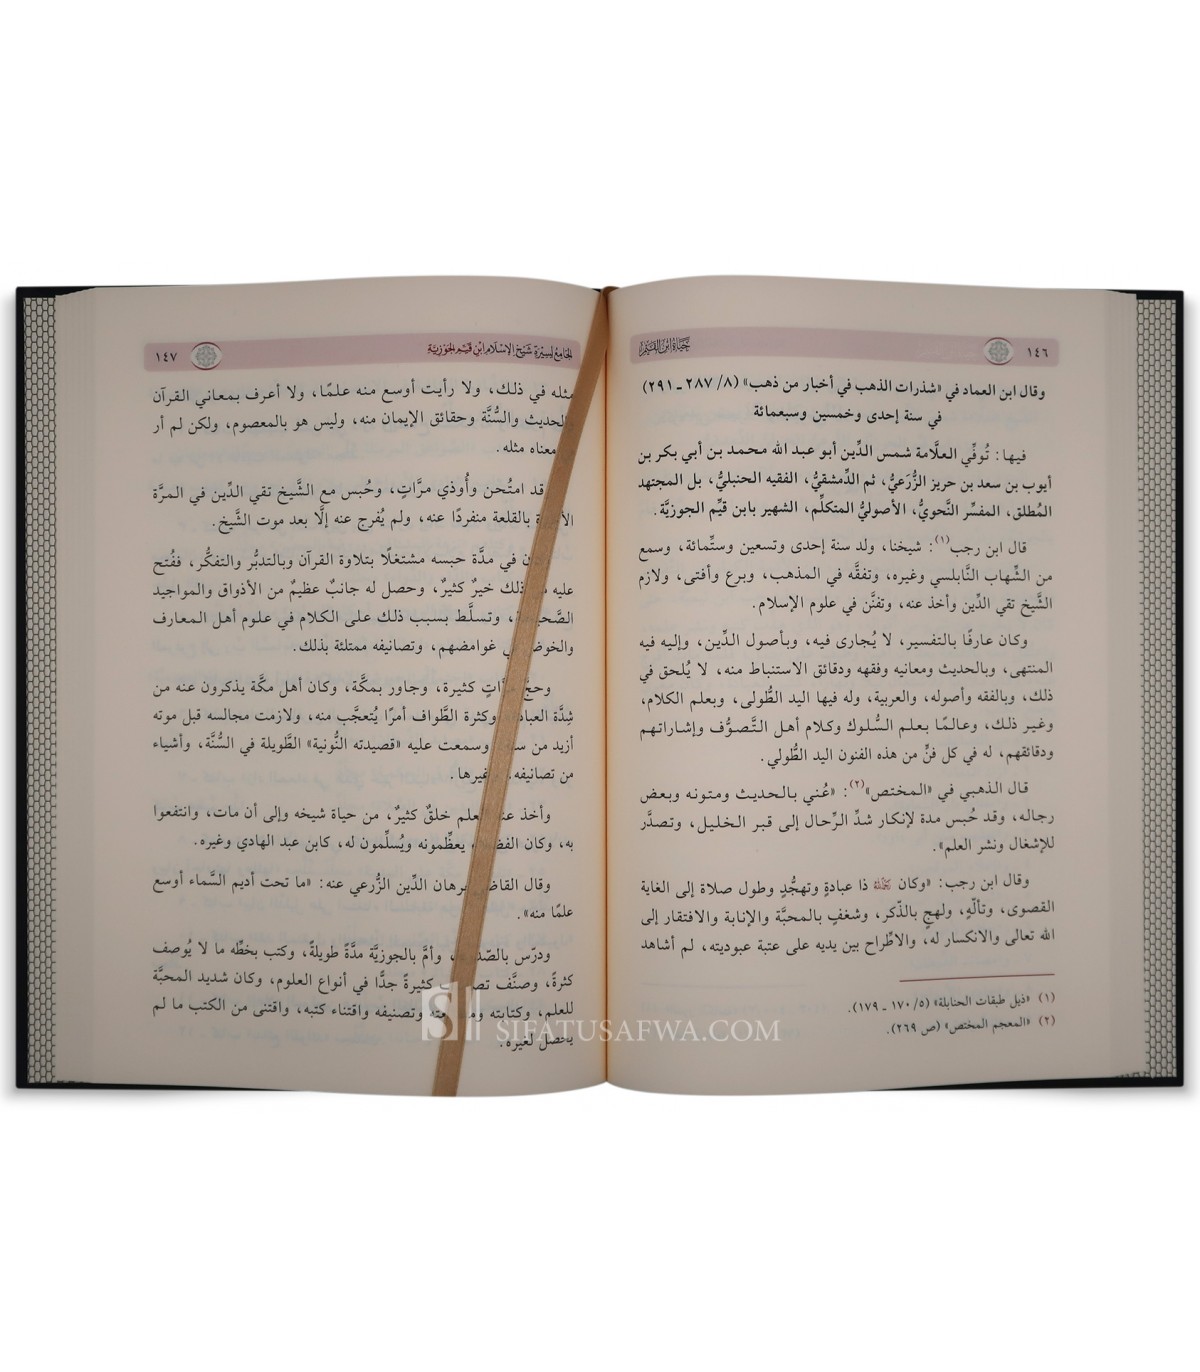 ١٤٦
حياة ابن القيم
وقال ابن العماد في «شذرات الذهب في أخبار من ذهب» (٨/ ٢٨٧ ـ ٢٩١)
في سنة إحدى وخمسين وسبعمائة
فيها: تُوفِّي العلَّامة شمس الدِّين أبو عبد الله محمد بن أبي بكر بن
أيوب بن سعد بن حريز الزُّرَعيُّ، ثم الدِّمشقيُّ، الفقيه الحنبليُّ، بل المجتهد
المُطلق، المفسِّر النَّحويُّ، الأصوليُّ المتكلِّم، الشهير بابن قيِّم الجوزيَّة.
قال ابن رجب(١): شيخنا، ولد سنة إحدى وتسعين وستِّمائة، وسمع
من الشِّهاب النَّابلسي وغيره، وتفقَّه في المذهب، وبرع وأفتى، ولازم
الشَّيخ تقي الدِّين وأخذ عنه، وتفنَّن في علوم الإسلام.
وكان عارفًا بالتفسير، لا يُجارى فيه، وبأصول الدِّين، وإليه فيه
المنتهى، وبالحديث ومعانيه وفقهه ودقائق الاستنباط منه، لا يُلحق في
ذلك، وبالفقه وأصوله، والعربية، وله فيها اليد الطُّولى، وبعلم الكلام،
وغير ذلك، وعالمًا بعلم السُّلوك وكلام أهل التَّصوُّف وإشاراتهم
ودقائقهم، له في كل فنٍّ من هذه الفنون اليد الطُّولي.
قال الذهبي في «المختص»(٢): «عُني بالحديث ومتونه وبعض
رجاله، وقد حُبس مدة لإنكار شدِّ الرِّحال إلى قبر الخليل، وتصدَّر
للإشغال ونشر العلم».
وقال ابن رجب: «وكان ذا عبادةٍ وتهجُّدٍ وطول صلاة إلى الغاية
القصوى، وتألُّهٍ، ولهجٍ بالذّكر، وشغفٍ بالمحبَّة والإنابة والافتقار إلى
الله تعالى والانكسار له، والاطِّراح بين يديه على عتبة عبوديته، لم أشاهد
(١) «ذيل طبقات الحنابلة» (٥/ ١٧٠ ـ ١٧٩).
(٢) «المعجم المختص» (ص ٢٦٩).
الجامع لسيرة شيخ الإسلام ابن قيم الجوزية
١٤٧
مثله في ذلك، ولا رأيت أوسع منه علمًا، ولا أعرف بمعاني القرآن
والحديث والسُّنَّة وحقائق الإيمان منه، وليس هو بالمعصوم، ولكن لم أر
معناه مثله.
قد امتُحن وأُوذي مرَّاتٍ، وحُبس مع الشَّيخ تقي الدِّين في المرَّة
بالقلعة منفردًا عنه، ولم يُفرج عنه إلَّا بعد موت الشَّيخ.
في مدَّة حبسه مشتغلًا بتلاوة القرآن وبالتدبُّر والتفكُّر، ففُتح
عليه ذلك خيرٌ كثيرٌ، وحصل له جانبٌ عظيمٌ من الأذواق والمواجيد
وتسلَّط بسبب ذلك على الكلام في علوم أهل المعارف
والخوض غوامضهم، وتصانيفه ممتلئة بذلك.
وحجَّ مرَّاتٍ كثيرة، وجاور بمكَّة، وكان أهل مكَّة يذكرون عنه من
شِدَّة العبادة وكثرة الطَّواف أمرًا يُتعجَّب منه، ولازمت مجالسه قبل موته
أزيد من وسمعت عليه «قصيدته النُّونية» الطَّويلة في السُّنَّة، وأشياء
من تصانيفه، وغيرها.
وأخذ عنه العلم خلقٌ كثيرٌ، من حياة شيخه وإلى أن مات، وانتفعوا
به، وكان يعظِّمونه ويُسلِّمون له، كابن عبد الهادي وغيره.
وقال القاضي برهان الدِّين الزُّرعي عنه: «ما تحت أديم السَّماء أوسع
علمًا منه».
ودرّس وأمَّ بالجوزيَّة مدَّةً طويلةً، وكتب بخطِّه ما لا يُوصف
كثرةً، وصنَّف كثيرةً جدًّا في أنواع العلوم، وكان شديد المحبَّة
للعلم، وكتابته وتصنيفه واقتناء كتبه، واقتنى من الكتب ما لم
يحصل لغيره.
SIFATUSAFWA.COM